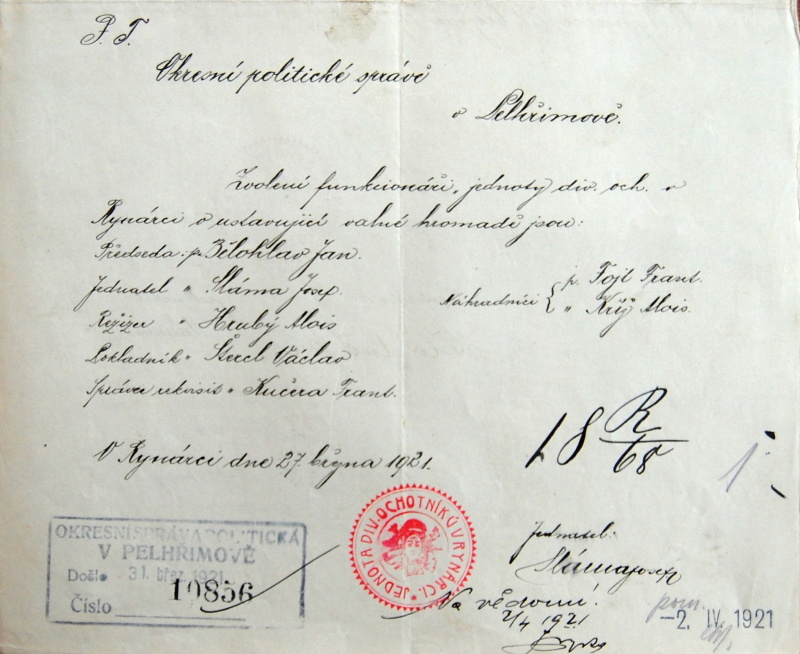 P. T.
Okresní politické správě
v Pelhřimově.
Zvolení funkcionáři „jednoty div. och. v
Rynárci v ustavující valné hromadě jsou:
Předseda: p. Bělohlav Jan.
Jednatel „ Sláma Josef.
Režizer „ Hrubý Alois
Pokladník „ Štercl Václav
Správce rekvisit „ Kučera Frant.
Náhradníci { p. Fojt Frant.
„ Kříž Alois.
V Rynárci dne 27. března 1921.
18 R/68
1
OKRESNÍ SPRÁVA POLITICKÁ
V PELHŘIMOVĚ
Došlo 31. břez. 1921
Číslo 10856
JEDNOTA DIV. OCHOTNÍKŮ V RYNÁRCI.
Jednatel:
Sláma Josef
Na vědomí!
2/4 1921
-2. IV. 1921